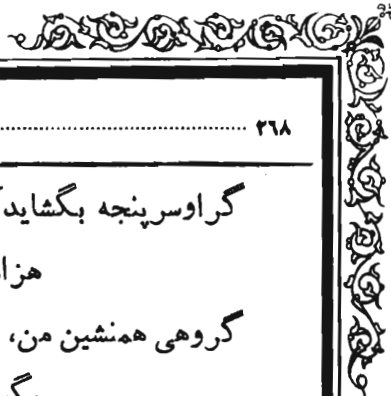 ۲۶۸ ........................................
گر او سر پنجه بگشاید
هزا
گروهی همنشین من،